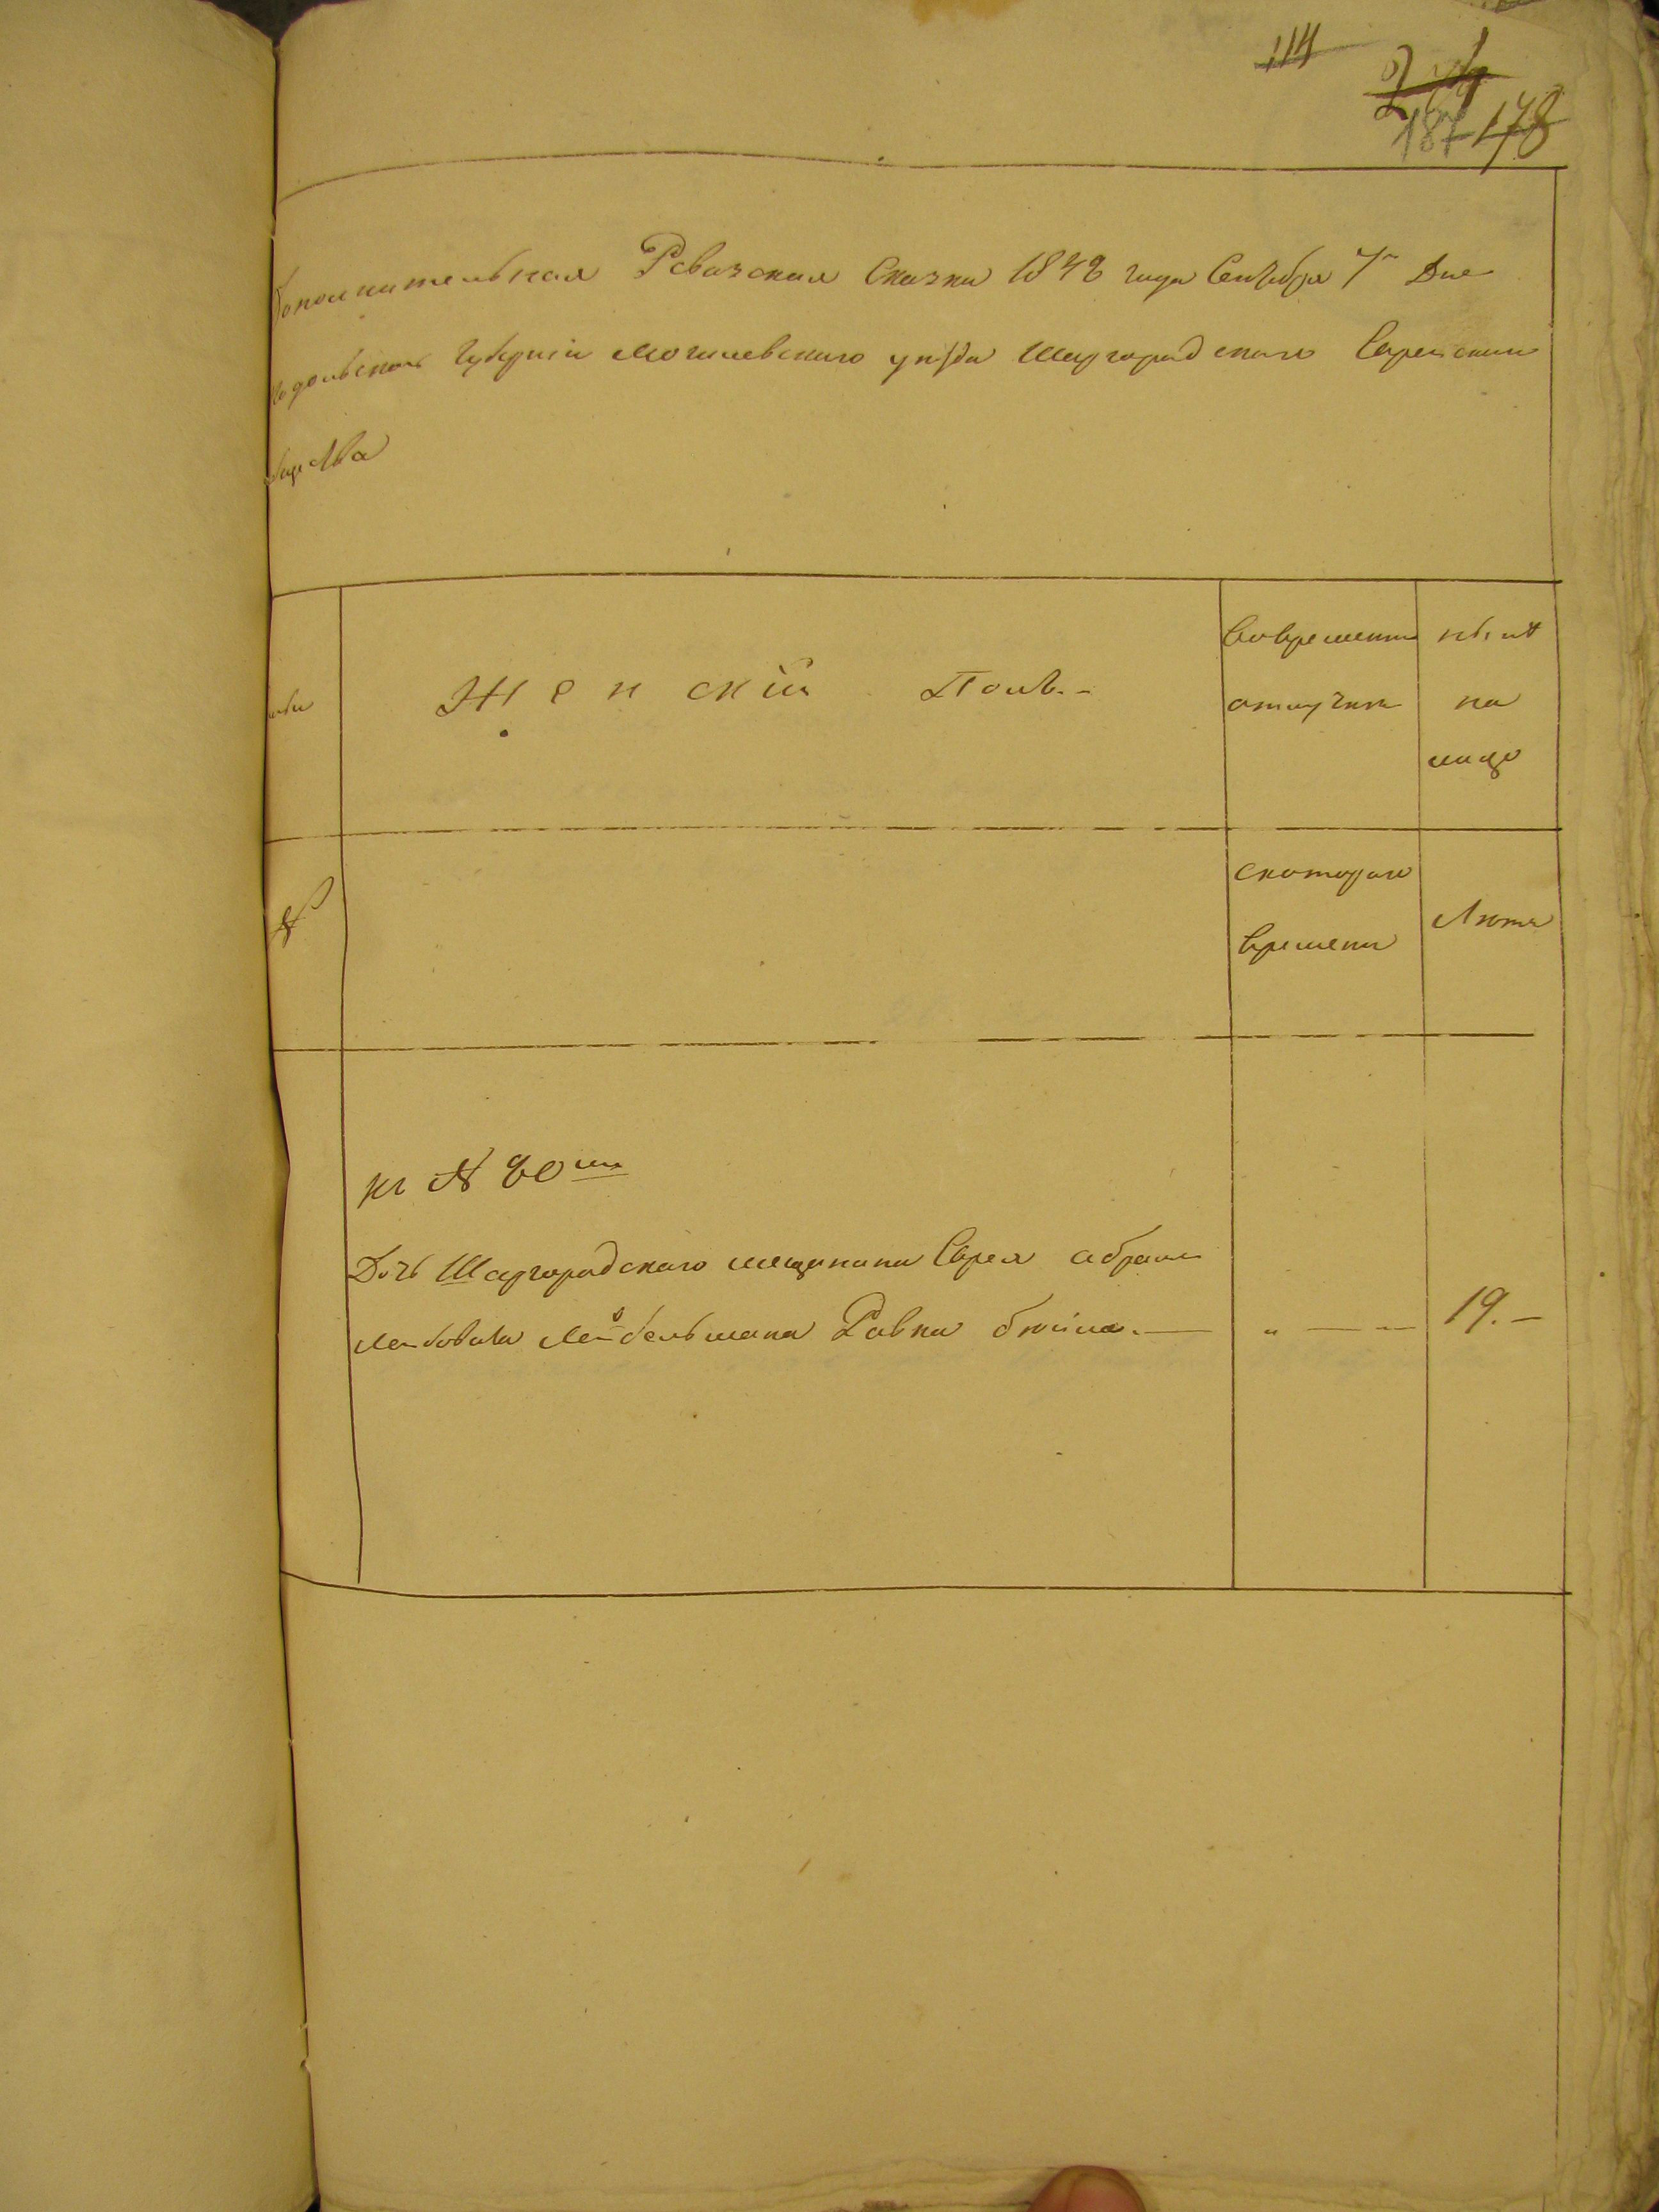 114
187 178
Дополнительная Ревизская Сказка 1842 года Сентября 7 Дня
Подольской губернии Могилевского уезда Шаргородского Еврейского
общества
Женский Полъ.
во временной отлучке
ныне на лицо
№
с которого времени
Лета
къ № 80му
Дочь Шаргородского мещанина Еврея Абрама
Лейбовича Лейбельмана Ривка — 19. —